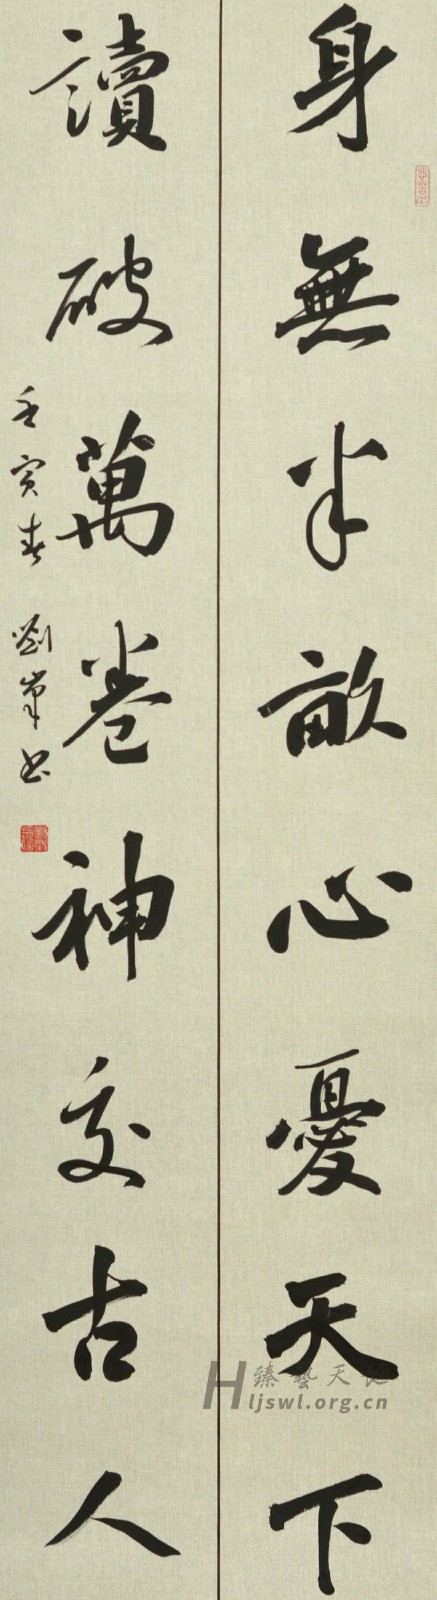 身無半畝心憂天下
讀破萬卷神交古人
壬寅春 劉峯书
臻藝天地
Hljswl.org.cn